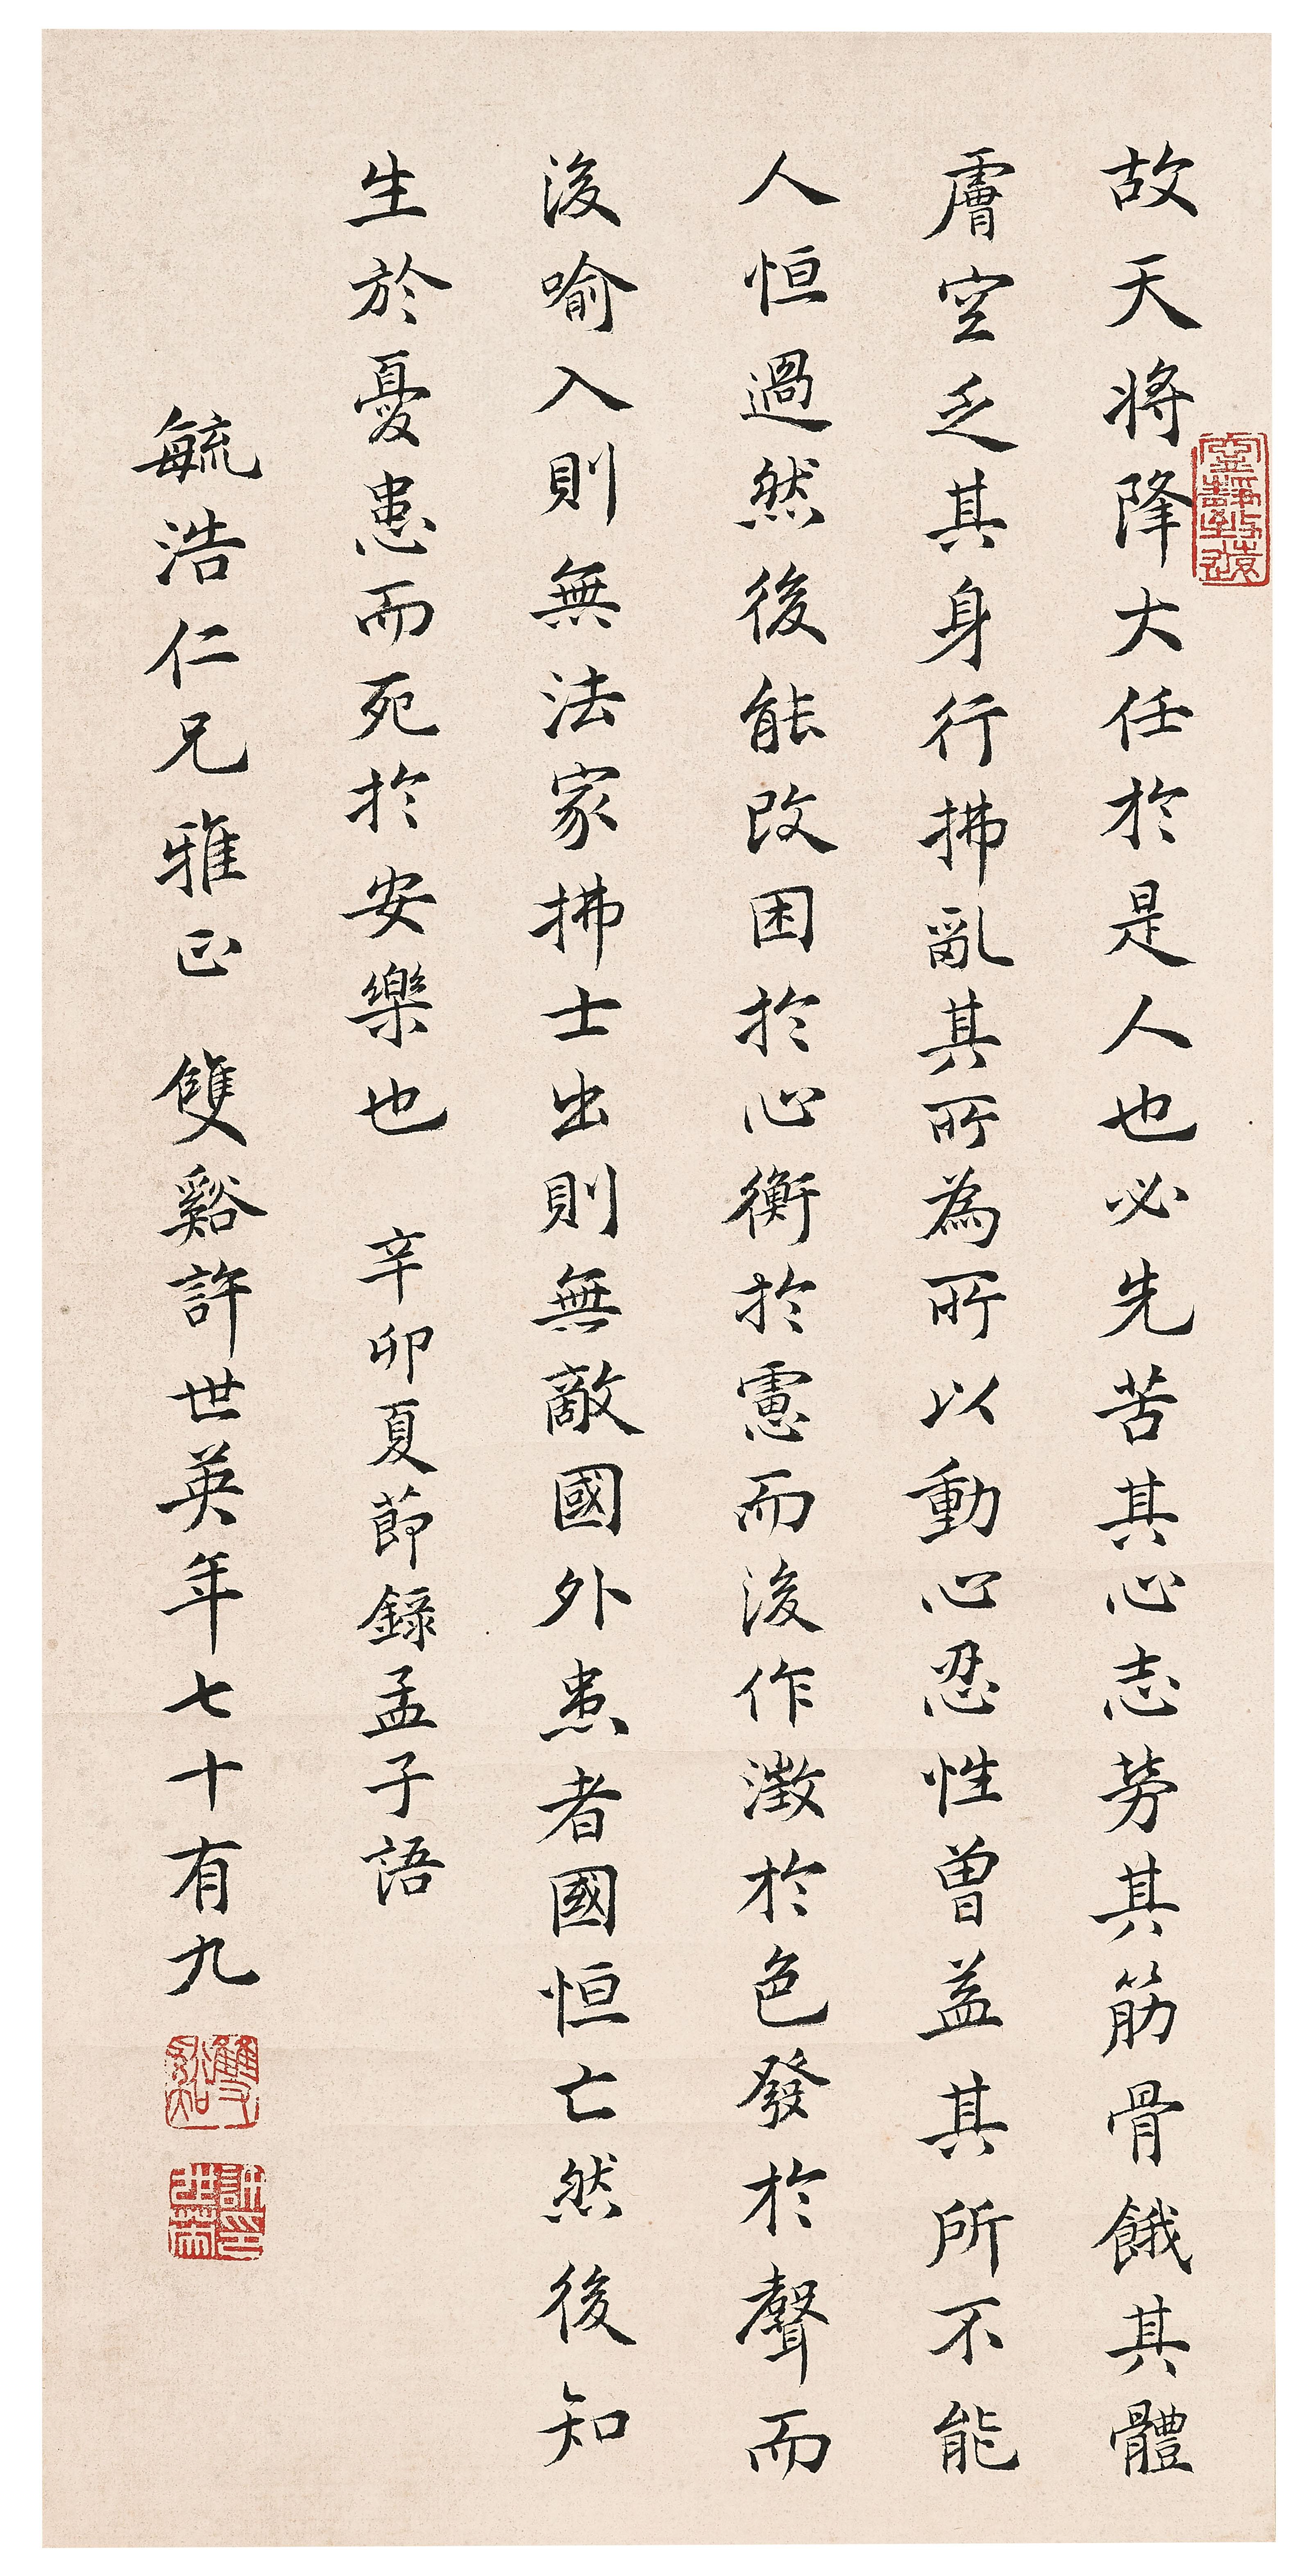 故天將降大任於是人也必先苦其心志勞其筋骨餓其體
膚空乏其身行拂亂其所為所以動心忍性曾益其所不能
人恒過然後能改困於心衡於慮而後作徵於色發於聲而
後喻入則無法家拂士出則無敵國外患者國恒亡然後知
生於憂患而死於安樂也 辛卯夏節錄孟子語
毓浩仁兄雅正 雙谿許世英年七十有九
寧靜致遠
雙谿
許世英印